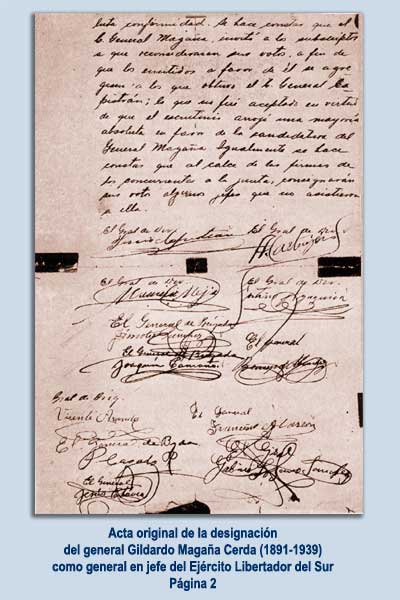 esta conformidad. Se hace constar que el
C. General Magaña, invitó a los subscriptos
a que reconsideraran sus votos, a fin de
que los emitidos a favor de él se agre
garan a los que obtuvo el C. General Ca
pistrán; lo que no fué aceptado en virtud
de que el escrutinio arrojó una mayoría
absoluta en favor de la candidatura del
General Magaña. Igualmente se hace
constar que al calce de las firmas de
los concurrentes a la junta, consignarán
sus votos algunos jefes que no asistieron
a ella.
El Gral de Div. El Gral de Div.
El Gral de Div. El Gral de Div.
El General de Brigada
El General
El General de Brigada
Joaquín Camaño
Gral de Brig.
El General
Vicente Aranda
Francisco Alarcón
El General de Bgda
El Gral
El General
Acta original de la designación
del general Gildardo Magaña Cerda (1891-1939)
como general en jefe del Ejército Libertador del Sur
Página 2